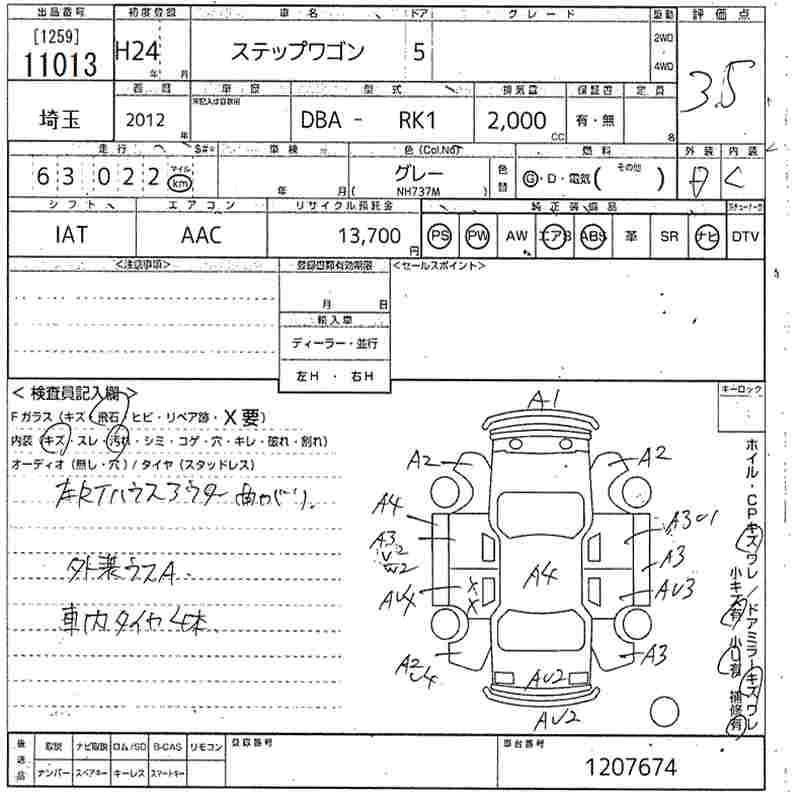 出品番号 初度登録 車名 ドア グレード 駆動 評価点
[1259]
11013 H24 年 月 ステップワゴン 5 2WD 4WD 3.5
車歴 型式 排気量 保証書 定員
未記入は自家用
埼玉 2012 年 DBA - RK1 2,000 CC 有・無 名
走行 S#* 車検 色(Col.No) 燃料 外装 内装
63022 マイル km 年 月 グレー (NH737M) 色替 G・D・電気( その他 ) C
シフト エアコン リサイクル預託金 純正装備品
IAT AAC 13,700 円 PS PW AW エアB ABS 革 SR ナビ DTV
<注意事項> 登録書類有効期限 <セールスポイント>
月 日
輸入車
ディーラー・並行
左H ・ 右H
<検査員記入欄> キーロック
Fガラス(キズ・飛石・ヒビ・リペア跡・X要)
内装(キズ・スレ・汚れ・シミ・コゲ・穴・キレ・破れ・割れ)
オーディオ(無し・穴)/タイヤ(スタッドレス)
外装ウスA
車内タイヤ4本
A1
A2 A2
A4
A3
U2
W2
AU4
X
X
A4
A3
AU3
A2
U4
A3
AU2
AU2
ホイル・CPキズワレ/ドアミラーキズワレ
小キズ有 小U有 補修有
後送品 取説 ナビ取説 ロム/SD B-CAS リモコン 登録番号 車台番号
ナンバー スペアキー キーレス スマートキー 1207674